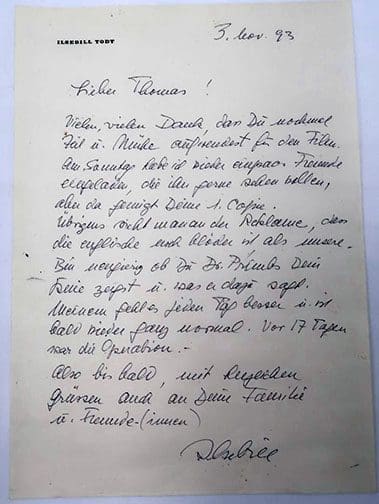 ILSEBILL TODT
3. Nov. 93
Lieber Thomas!
Vielen, vielen Dank, dass Du nochmal
Zeit u. Mühe aufwendest für den Film.
Am Sonntag habe ich wieder ein paar Freunde
eingeladen, die ihn gerne sehen wollen,
aber da genügt Deine 1. Copie.
Übrigens sieht man an der Reklame, dass
die englische noch blöder ist als unsere.
Bin neugierig ob Du Dr. Primbs Dein
Knie zeigst u. was er dazu sagt.
Meinem geht es jeden Tag besser u. ist
bald wieder ganz normal. Vor 17 Tagen
war die Operation.-
Also bis bald, mit herzlichen
Grüssen auch an Deine Familie
u. Freunde-(innen)
Ilsebill